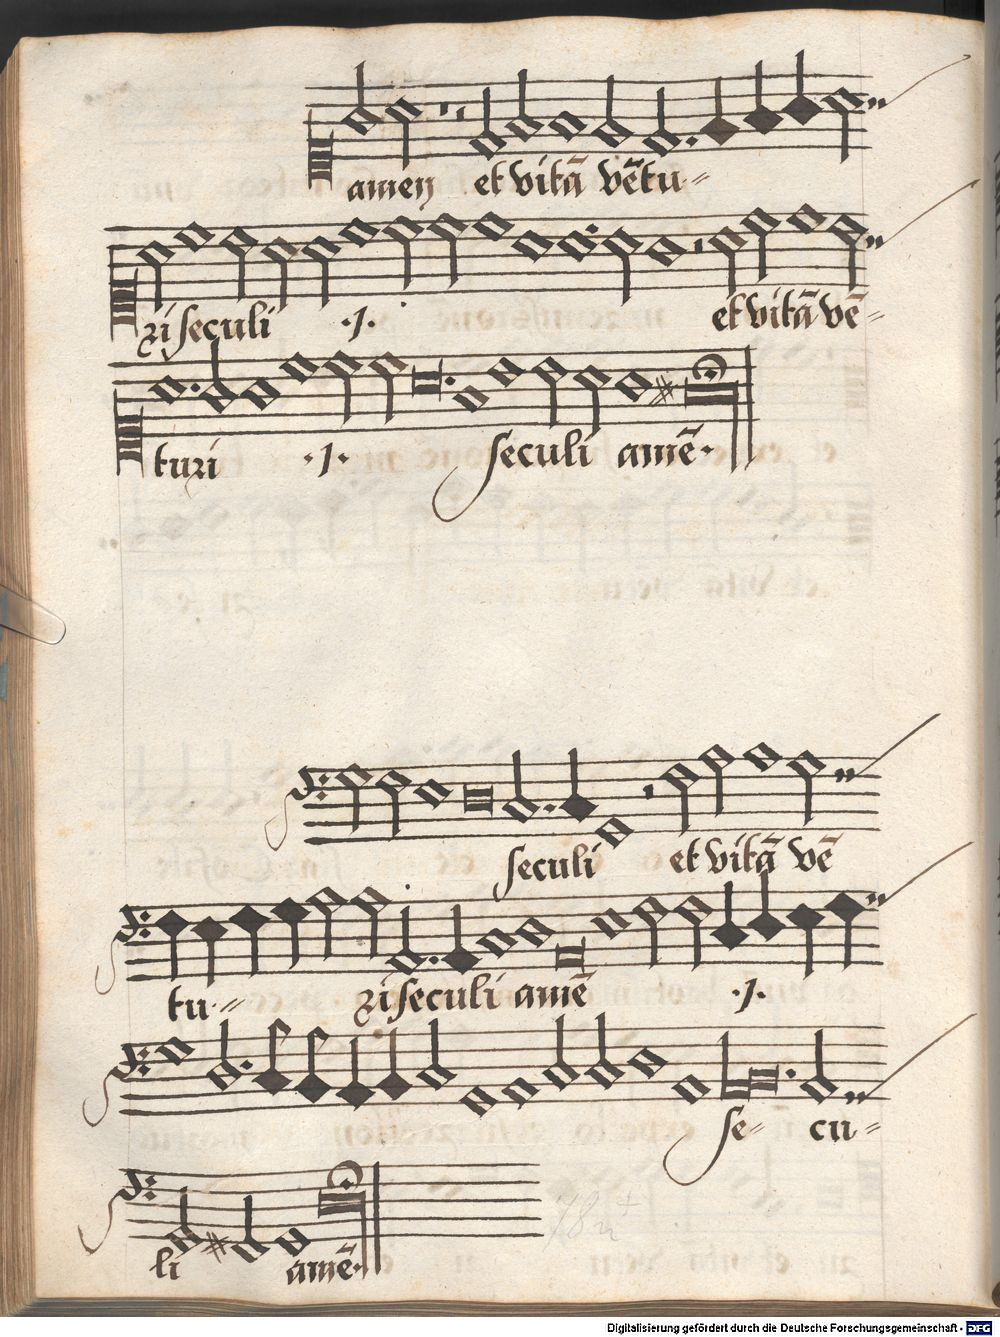 amen et vitā vētu-
ri seculi .I. et vitā vē-
turi .I. seculi amē.
seculi et vitā vē
tu.- ri seculi amē .I.
se- cu-
li amē.
Digitalisierung gefördert durch die Deutsche Forschungsgemeinschaft - DFG